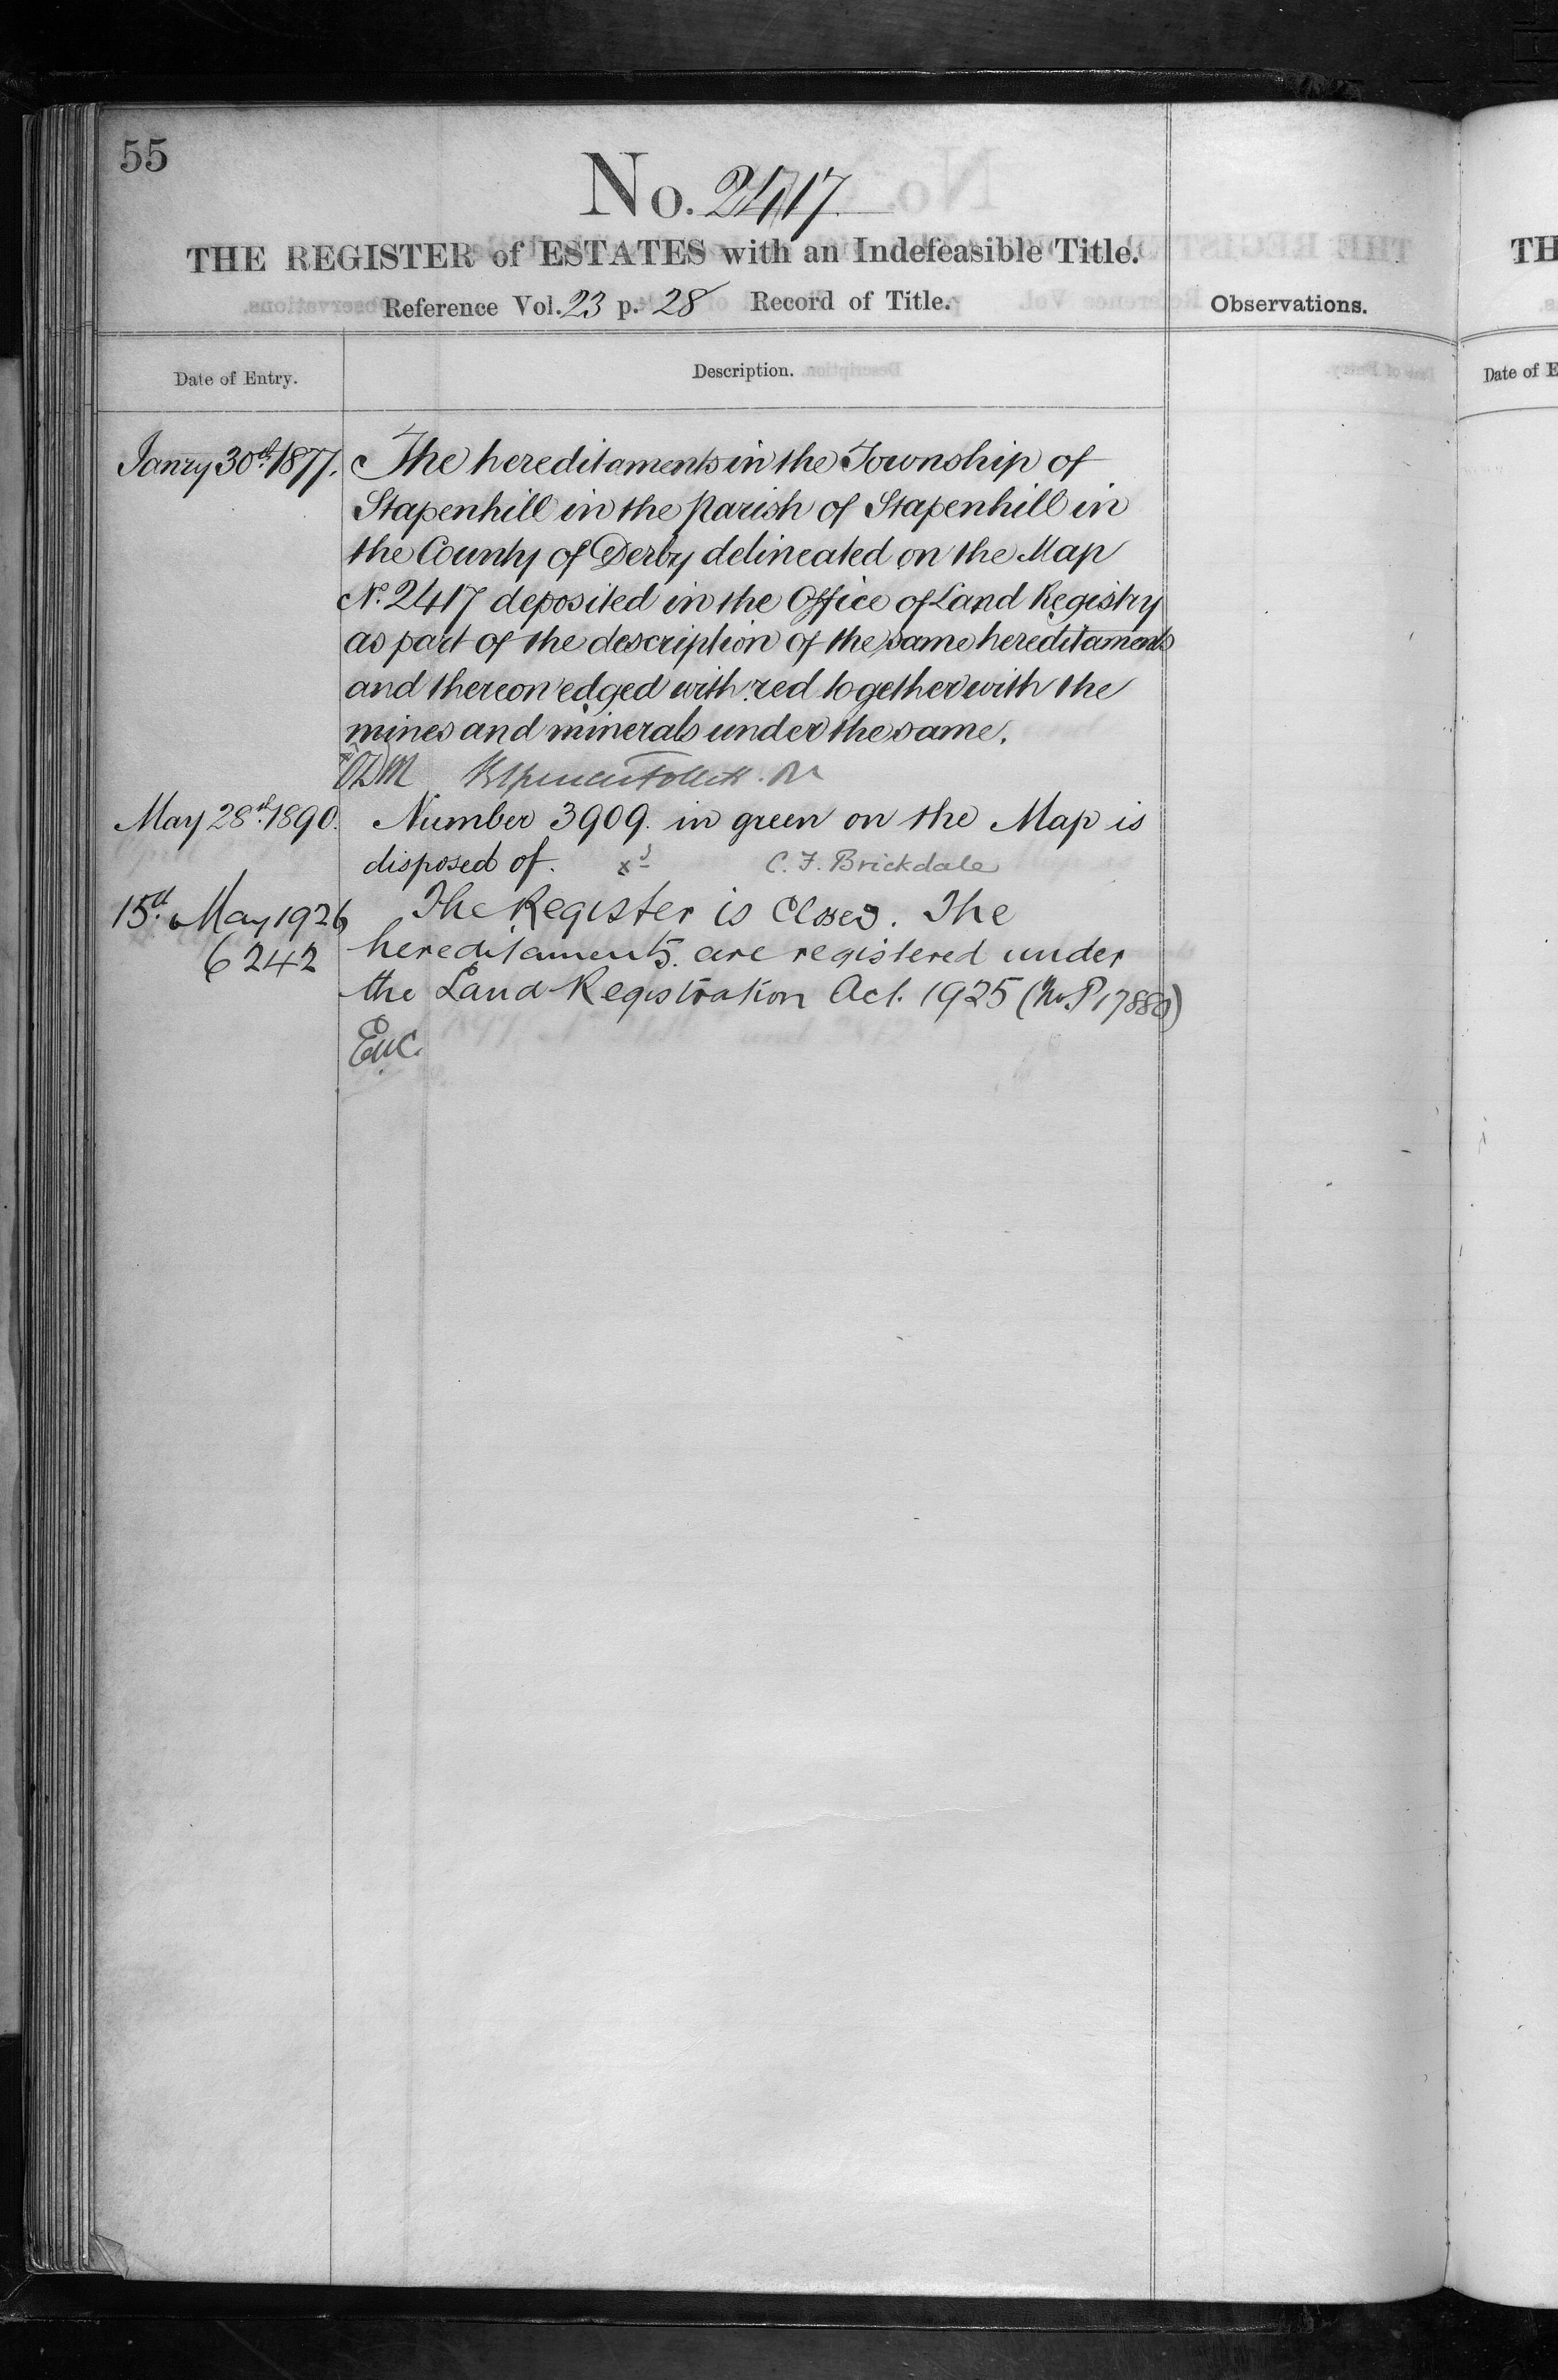 55
No. 2417.
THE REGISTER of ESTATES with an Indefeasible Title.
Reference Vol. 23 p. 28 Record of Title.
Observations.
Date of Entry.
Description.
Janry 30th 1877. The hereditaments in the Township of
Stapenhill in the Parish of Stapenhill in
the County of Derby delineated on the Map
No. 2417 deposited in the Office of Land Registry
as part of the description of the same hereditaments
and thereon edged with red together with the
mines and minerals under the same.
May 28th 1890. Number 3909. in green on the Map is
disposed of. xd C. F. Brickdale
15th May 1926 The Register is Closed. The
6242 hereditaments are registered under
the Land Registration Act. 1925 (No. P17880)
TH
Date of E